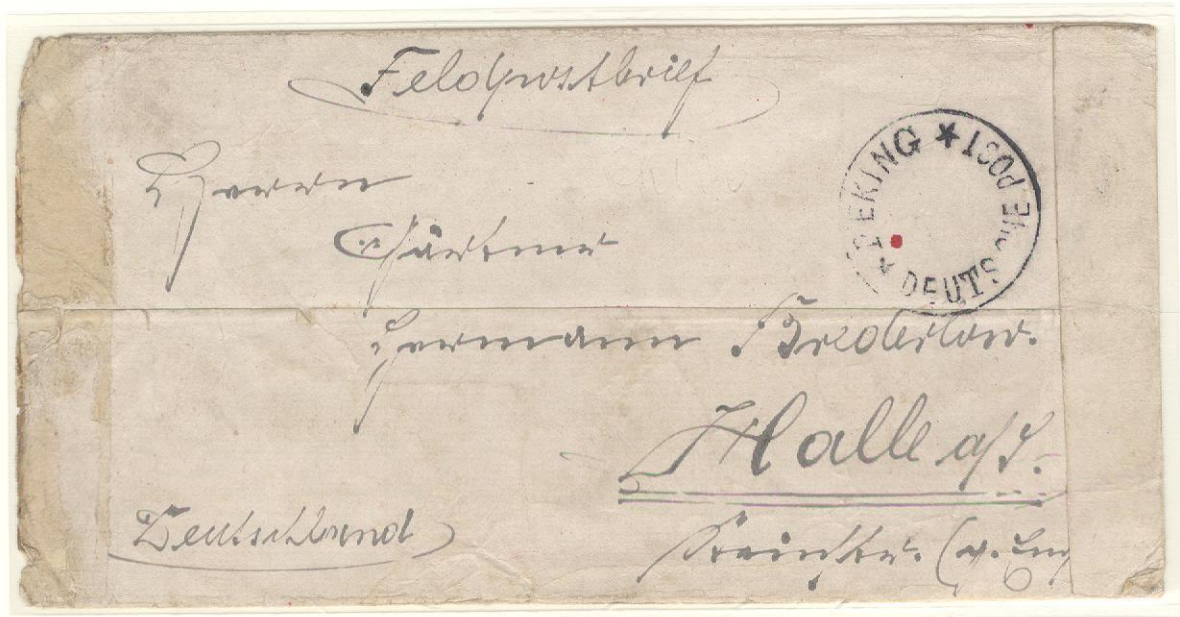 Feldpostbrief
PEKING * DEUTSCHE POST *
Herrn
Gärtner
Hermann Brederlow.
Halle a/S.
Deutschland